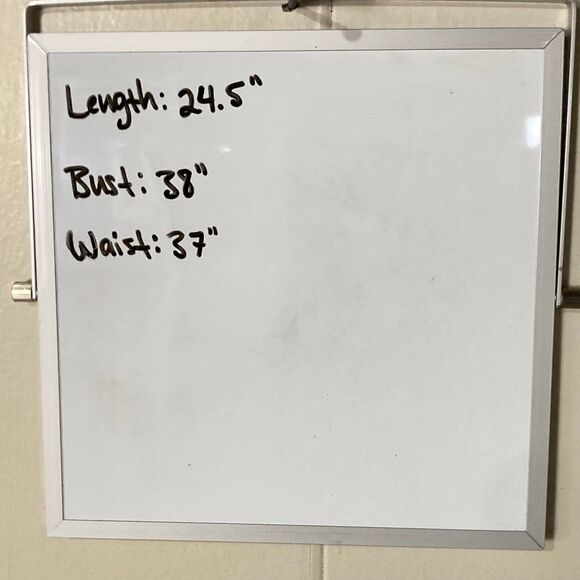 Length: 24.5"
Bust: 38"
Waist: 37"